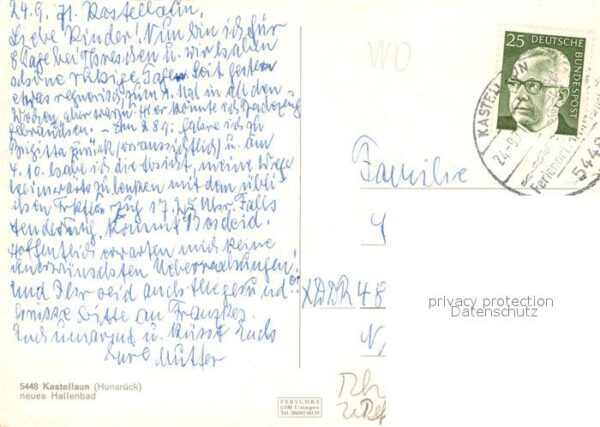 24.9. 71. Kastellaun.
Liebe Kinder! Nun bin ich für
8 Tage bei Threschen u. wir haben
schöne ruhige Tage. Seit gestern
etwas regnerisch, zum 1. Mal in all den
Wochen, aber warm. Hier könnte ich
gebrauchen. – Am 28.9. fahre ich zu
Brigitta zurück (voraussichtlich) u. am
4.10. habe ich die Absicht, meine Wege
heimwärts zu lenken mit dem übli-
chen Zug 17.25 Uhr. Falls
kommt Bescheid.
Hoffentlich erwarten mich keine
unerwünschten Ueberraschungen!
Und Ihr seid auch alle gesund?
Grüsse bitte an
Euch umarmt u. küsst Eure
Mutter
5448 Kastellaun (Hunsrück)
neues Hallenbad
PERSCHKE
6390 Usingen
25 DEUTSCHE BUNDESPOST
KASTELLAUN
5448
Familie
XDDR 48
privacy protection
Datenschutz